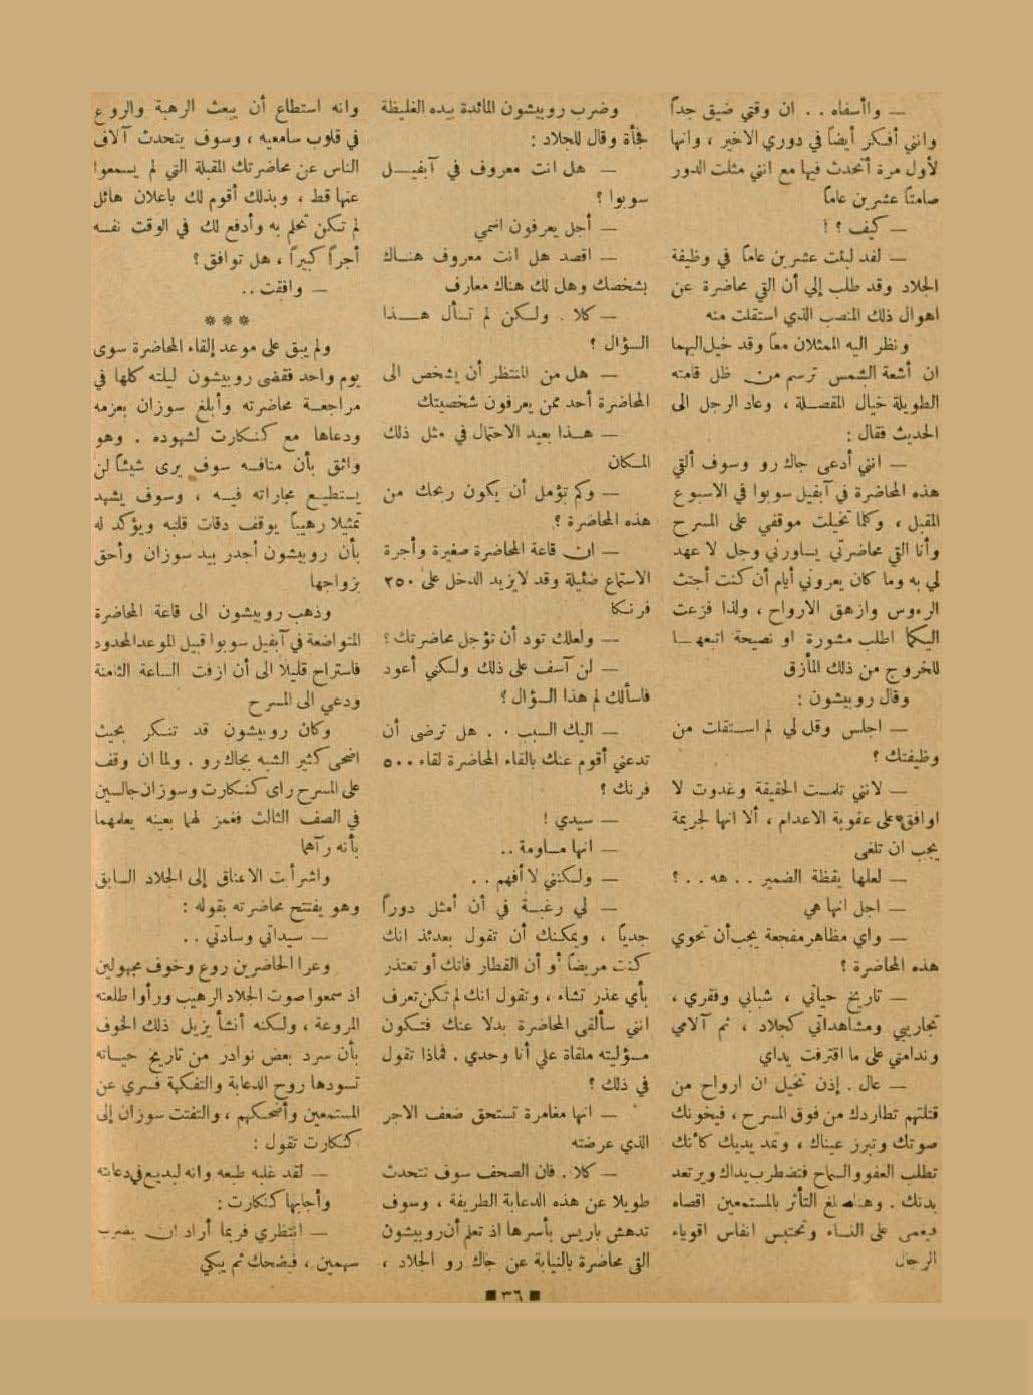 — واأسفاه .. ان وقتي ضيق جداً
وانني أفكر أيضاً في دوري الاخير ، وانها
لأول مرة أتحدث فيها مع انني مثلت الدور
صامتاً عشرين عاماً
— كيف ؟ !
— لقد لبثت عشرين عاماً في وظيفة
الجلاد وقد طلب إلي أن القي محاضرة عن
اهوال ذلك المنصب الذي استقلت منه
ونظر اليه الممثلان معاً وقد خيل اليهما
ان أشعة الشمس ترسم من ظل قامته
الطويلة خيال المقصلة ، وعاد الرجل الى
الحديث فقال :
— انني أدعى جاك رو وسوف ألقي
هذه المحاضرة في آبفيل سوبوا في الاسبوع
المقبل ، وكلما تخيلت موقفي على المسرح
وأنا القي محاضرتي يساورني وجل لا عهد
لي به وما كان يعروني أيام أن كنت أجتث
الرءوس وازهق الارواح ، ولذا فزعت
اليكما اطلب مشورة او نصيحة اتبعهـا
للخروج من ذلك المأزق
وقال روبيشون :
— اجلس وقل لي لم استقلت من
وظيفتك ؟
— لانني تلمست الحقيقة وغدوت لا
اوافق على عقوبة الاعدام ، ألا انها لجريمة
يجب ان تلغى
— لعلها يقظة الضمير .. هه .. ؟
— اجل انها هي
— واي مظاهر مفجعة يجب أن تحوي
هذه المحاضرة ؟
— تاريخ حياتي ، شبابي وفقري ،
تجاربي ومشاهداتي كجلاد ، ثم آلامي
وندامتي على ما اقترفت يداي
— عال . إذن تخيل ان ارواح من
قتلتهم تطاردك من فوق المسرح ، فيخونك
صوتك وتبرز عيناك ، وتمد يديك كأنك
تطلب العفو والسماح فتضطرب يداك ويرتعد
بدنك . وهنا يبلغ التأثر بالمستمعين اقصاه
فيغمى على النساء وتحتبس انفاس اقوياء
الرجال
وضرب روبيشون المائدة بيده الغليظة
فجأة وقال للجلاد :
— هل انت معروف في آبفيــل
سوبوا ؟
— أجل يعرفون اسمي
— اقصد هل انت معروف هنـاك
بشخصك وهل لك هناك معارف
— كلا . ولكن لم تسأل هــذا
السؤال ؟
— هل من المنتظر أن يشخص الى
المحاضرة أحد ممن يعرفون شخصيتك
— هـذا بعيد الاحتمال في مثل ذلك
المكان
— وكم تؤمل أن يكون ربحك من
هذه المحاضرة ؟
— ان قاعة المحاضرة صغيرة وأجرة
الاستماع ضئيلة وقد لا يزيد الدخل على ٢٥٠
فرنكا
— ولعلك تود أن تؤجل محاضرتك ؟
— لن آسف على ذلك ولكني أعود
فاسألك لم هذا السؤال ؟
— اليك السبب .. هل ترضى أن
تدعني أقوم عنك بالقاء المحاضرة لقاء ٥٠٠
فرنك ؟
— سيدي !
— انها مساومة ..
— ولكنني لا أفهم ..
— لي رغبـة في أن أمثل دوراً
جدياً ، ويمكنك أن تقول بعدئذ انك
كنت مريضاً أو أن القطار فاتك أو تعتذر
بأي عذر تشاء ، وتقول انك لم تكن تعرف
انني سألقي المحاضرة بدلا عنك فتكون
مسؤليته ملقاة علي أنا وحدي . فماذا تقول
في ذلك ؟
— انها مغامرة تستحق ضعف الاجر
الذي عرضته
— كلا . فان الصحف سوف تتحدث
طويلا عن هذه الدعابة الطريفة ، وسوف
تدهش باريس بأسرها اذ تعلم أن روبيشون
القى محاضرة بالنيابة عن جاك رو الجلاد ،
وانه استطاع أن يبعث الرهبة والروع
في قلوب سامعيه ، وسوف يتحدث آلاف
الناس عن محاضرتك المقبلة التي لم يسمعوا
عنها قط ، وبذلك أقوم لك باعلان هائل
لم تكن تحلم به وأدفع لك في الوقت نفسه
أجراً كبيراً ، هل توافق ؟
— وافقت ..
***
ولم يبق على موعد إلقاء المحاضرة سوى
يوم واحد فقضى روبيشون ليلته كلها في
مراجعـة محاضرته وأبلغ سوزان بعزمه
ودعاها مع كنكارت لشهوده . وهو
واثق بأن منافسه سوف يرى شيئاً لن
يستطيـع مجاراته فيـه ، وسوف يشهد
تمثيلا رهيباً يوقف دقات قلبه ويؤكد له
بأن روبيشون أجدر بيد سوزان وأحق
بزواجها
وذهب روبيشون الى قاعة المحاضرة
المتواضعة في آبفيل سوبوا قبيل الموعد المحدود
فاستراح قليلا الى أن ازفت الساعة الثامنة
ودعي الى المسرح
وكان روبيشون قد تنكر بحيث
اضحى كثير الشبه بجاك رو . ولما ان وقف
على المسرح راى كنكارت وسوزان جالسين
في الصف الثالث فغمز لهما بعينه يعلمهما
بأنه رآهما
واشرأبت الاعناق إلى الجلاد السابق
وهو يفتتح محاضرته بقوله :
— سيداتي وسادتي ..
وعرا الحاضرين روع وخوف مجهولين
اذ سمعوا صوت الجلاد الرهيب ورأوا طلعته
المروعة ، ولكنه أنشأ يزيل ذلك الخوف
بأن سرد بعض نوادر من تاريخ حيـاته
تسودها روح الدعابة والتفكهة فسري عن
المستمعين وأضحكهم ، والتفتت سوزان إلى
كنكارت تقول :
— لقد غلبه طبعه وانه لبديع في دعابته
وأجابها كنكارت :
— انتظري فربما أراد ان يضرب
سهمين ، فيضحك ثم يبكي
٣٦